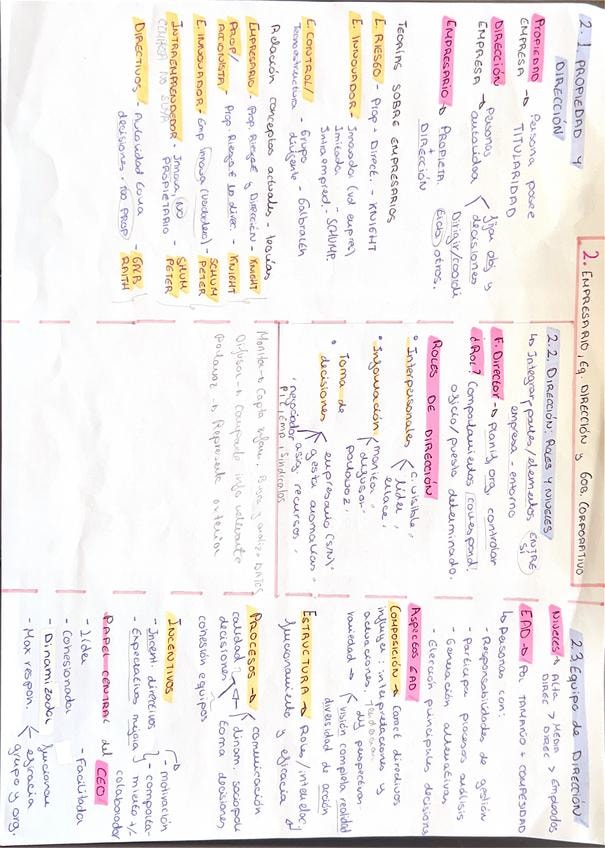 2. EMPRESARIO, Eq. DIRECCIÓN y GOB. CORPORATIVO
2.1 PROPIEDAD y
DIRECCIÓN
PROPIEDAD → Persona posee
EMPRESA TITULARIDAD
DIRECCIÓN → Personas fijan obj y
EMPRESA autoridad decisiones
Dirigir/coordi
EMPRESARIO → PROPIETA otros.
+ DIRECCIÓN
TEORÍAS SOBRE EMPRESARIOS
E. RIESGO - Prop + Direct. - KNIGHT
E. INNOVADOR - Innovador
Imitador
Intraempred. SCHUMP.
E. CONTROL/ - Grupo - Galbraith
Tecnoestructura dirigente
Relación conceptos actuales - teorías
EMPRESARIO - Prop. Riesgo E y Dirección - KNIGHT
PROP/ - Prop. Riesgo E lo direc. - KNIGHT
ACCIONISTA
E. INNOVADOR - Emp innova - SCHUM
PETER
INTRAEMPRENDEDOR - Innova NO - SCHUM
PROPIETARIO PETER
DIRECTIVOS - Autoridad toma - GALB
decisiones. NO PROP RAITH
2.2. DIRECCIÓN: ROLES Y NIVELES
↳ Integrar partes/elementos ENTRE
empresa - entorno SÍ
F. Director → Planif, org, controlar
¿Rol? Comportamientos correspond.
oficio/puesto determinado.
ROLES DE DIRECCIÓN
• Interpersonales c. visible,
líder,
enlace.
• Información monitor,
difusor,
portavoz.
• Toma de empresario
decisiones gest. anomalías,
negociador asig. recursos,
sindicatos
Monitor → Capta infor. Busca y analiza DATOS
Difusor → Comparte info relevante
Portavoz → Representa exterior
2.3 Equipo de DIRECCIÓN
Niveles → ALTA > MEDIA > Empleados
DIREC DIREC
EAD → Por TAMAÑO + COMPLEJIDAD
↳ Personas con:
- Responsabilidades de gestión
- Participar procesos análisis
- Generación alternativas
- Elección principales decisiones
ASPECTOS EAD
COMPOSICIÓN → Caract. directivos
influyen: interpretaciones y
actuaciones dif perspectivas
variedad → visión completa realidad
diversidad de acción
ESTRUCTURA → Roles/interrelac.
funcionamiento y eficacia
PROCESOS → comunicación
calidad dinam. sociopolí
decisiones toma decisiones
cohesión equipos
INCENTIVOS
- Incent. directivos - motivación
- Expectativas mejora - comporta-
miento +/-
colaborador
PAPEL CENTRAL del CEO
- Líder
- Cohesionador - Facilitador
- Dinamizador funcionam
- Max respon. eficacia
grupo y org.